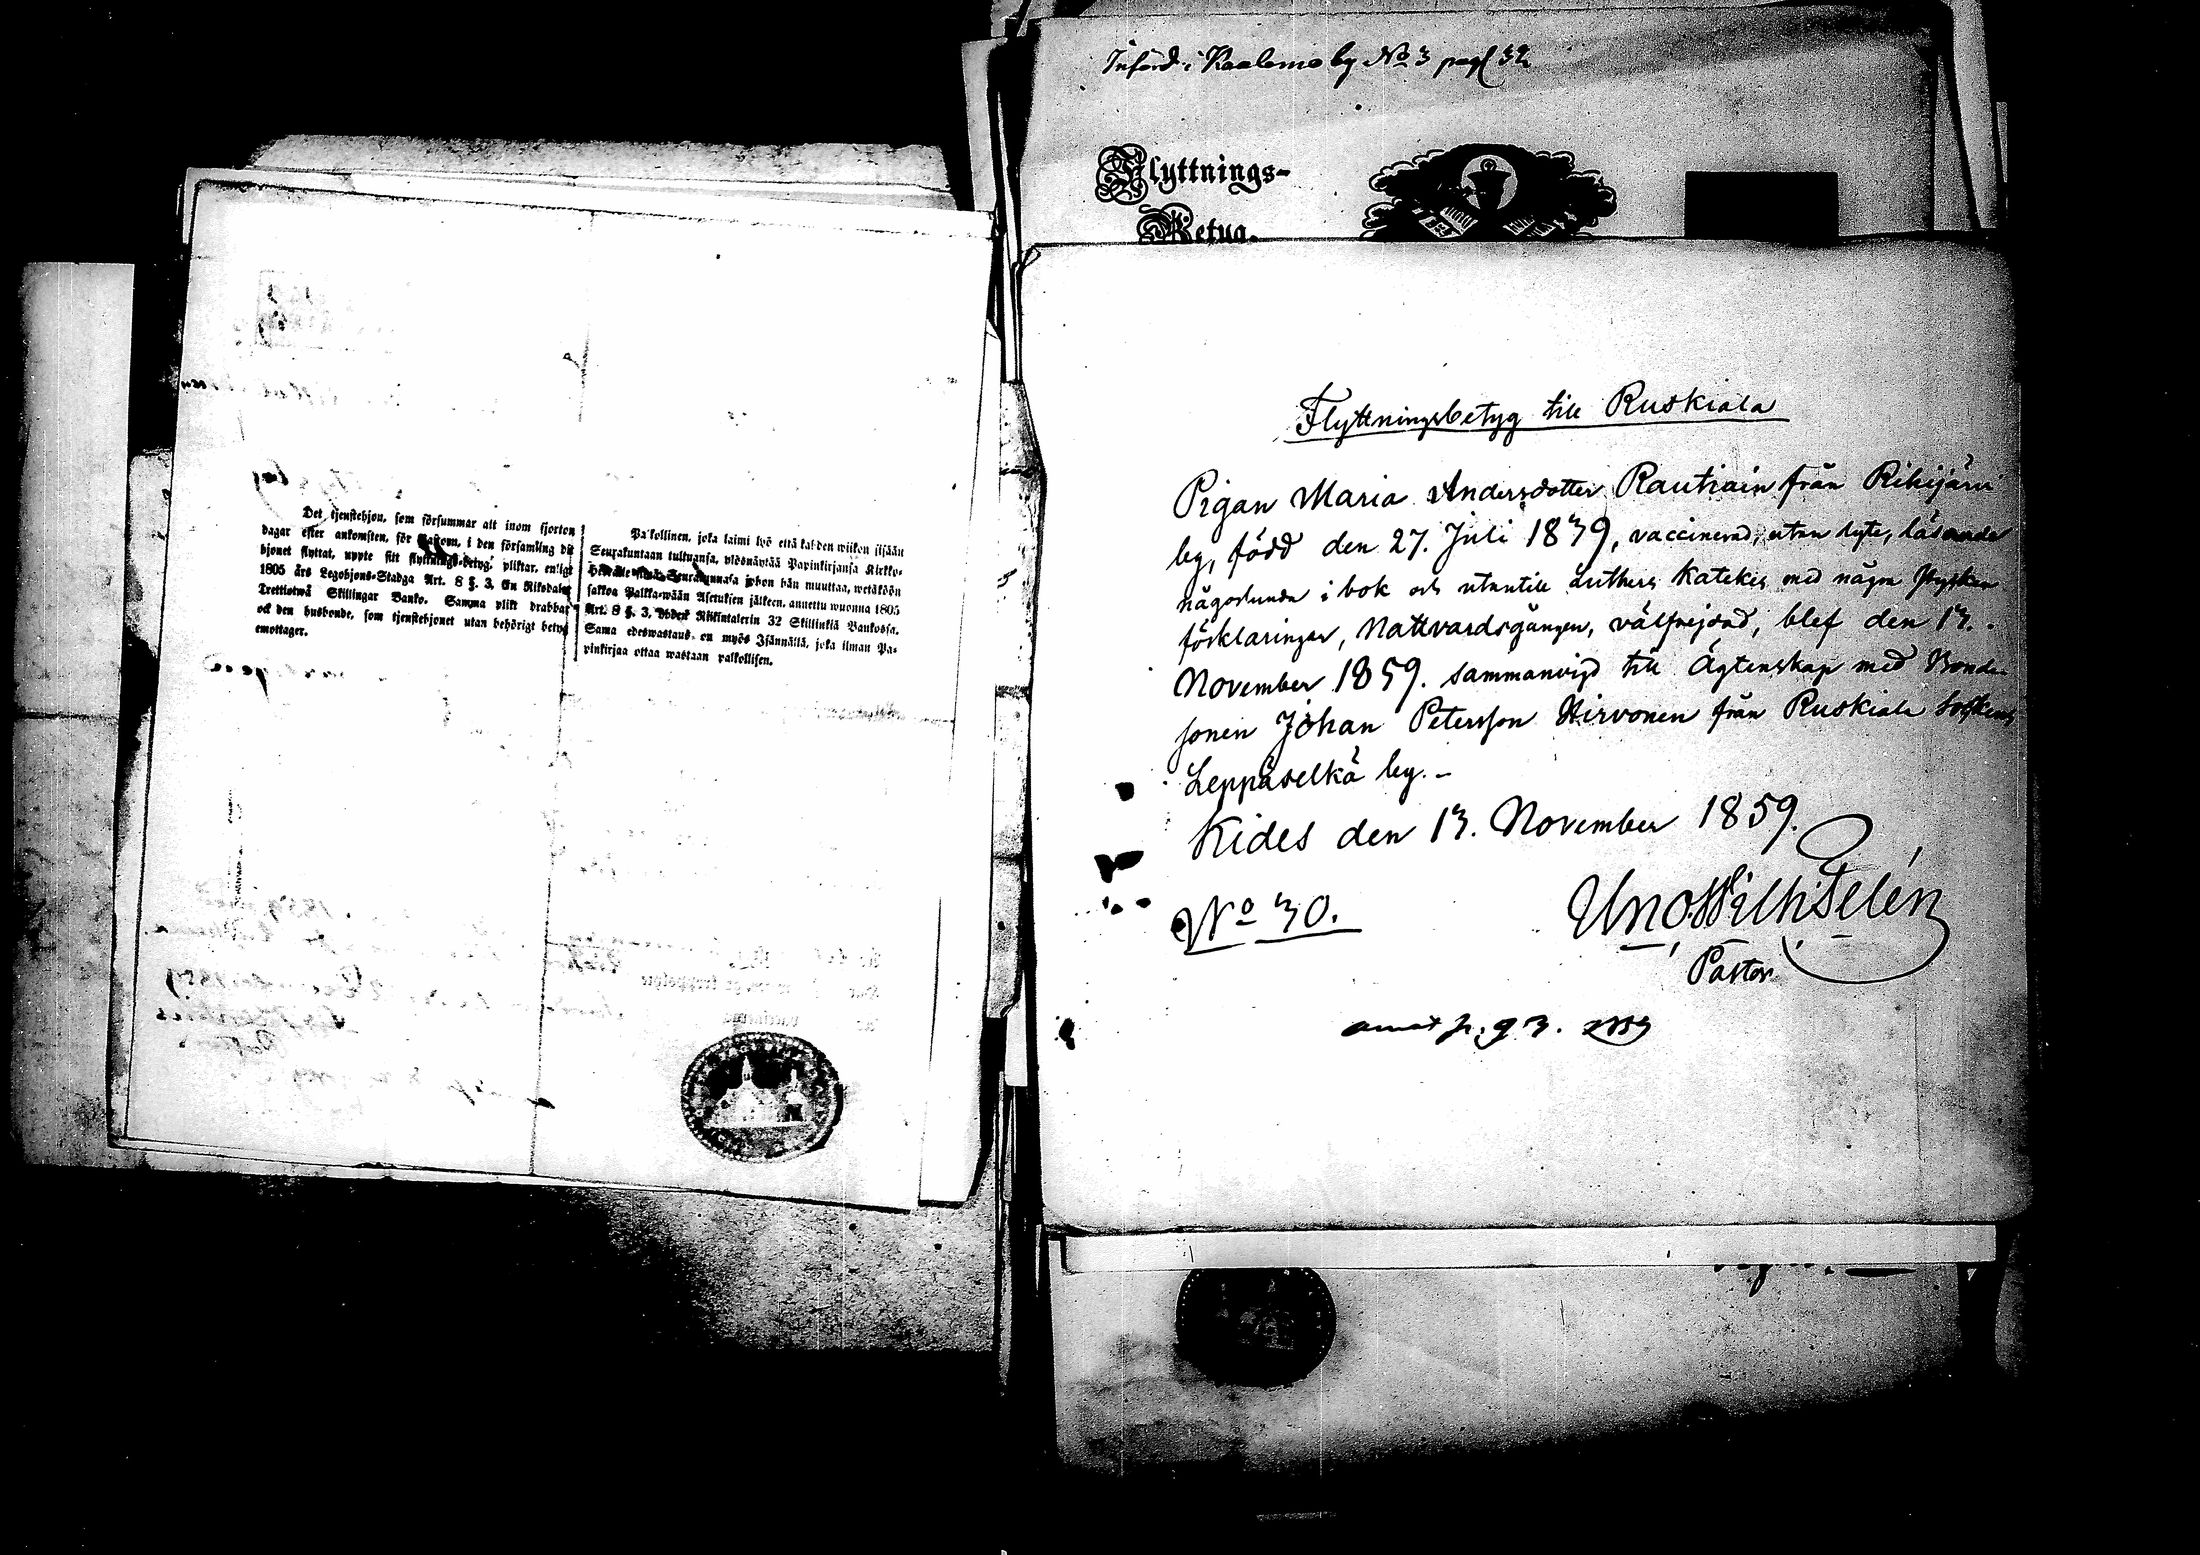 Det tjenstehjon, som försummar att inom fjorton
dagar efter ankomsten, för Pastorn, i den församling dit
hjonet flyttat, uppte sitt flyttnings-betyg, pliktar, enligt
1805 års Legohjons-Stadga Art. 8 §. 3, En Riksdaler
Trettiotwå Skillingar Banko. Samma plikt drabbar
ock den husbonde, som tjenstehjonet utan behörigt betyg
emottager.
Palkollinen, joka laimi lyö että kahden wiikon sisään
Seurakuntaan tultuansa, ylösnäytää Papinkirjansa Kirkko-
herralle siinä Seurakunnasa johon hän muuttaa, wetäköön
sakkoa Palkka-wään Asetuksen jälkeen, annettu wuonna 1805
Art. 8 §. 3, Yhden Riikintalerin 32 Skillinkiä Bankossa.
Sama edeswastaus, on myös Isännällä, joka ilman Pa-
pinkirjaa ottaa wastaan palkollisen.
Införd i Kaalamo by No 3 pag 32
Flyttnings-
Betyg.
Flyttningsbetyg till Ruskiala
Pigan Maria Andersdotter Rautiain från Rihijärvi
by, född den 27. Juli 1839, vaccinerad, utan lyte, läsande
någorlunda i bok och utantill Luthers Katekes med några stycken
förklaringar, Nattvardsgången, välfrejdad, blef den 13.
November 1859. sammanvigd till Ägtenskap med Bonde-
sonen Johan Petersson Hirvonen från Ruskiala Sockens
Leppäselkä by. -
Kides den 13. November 1859.
No 30.
Uno Wilh: Telén
Pastor